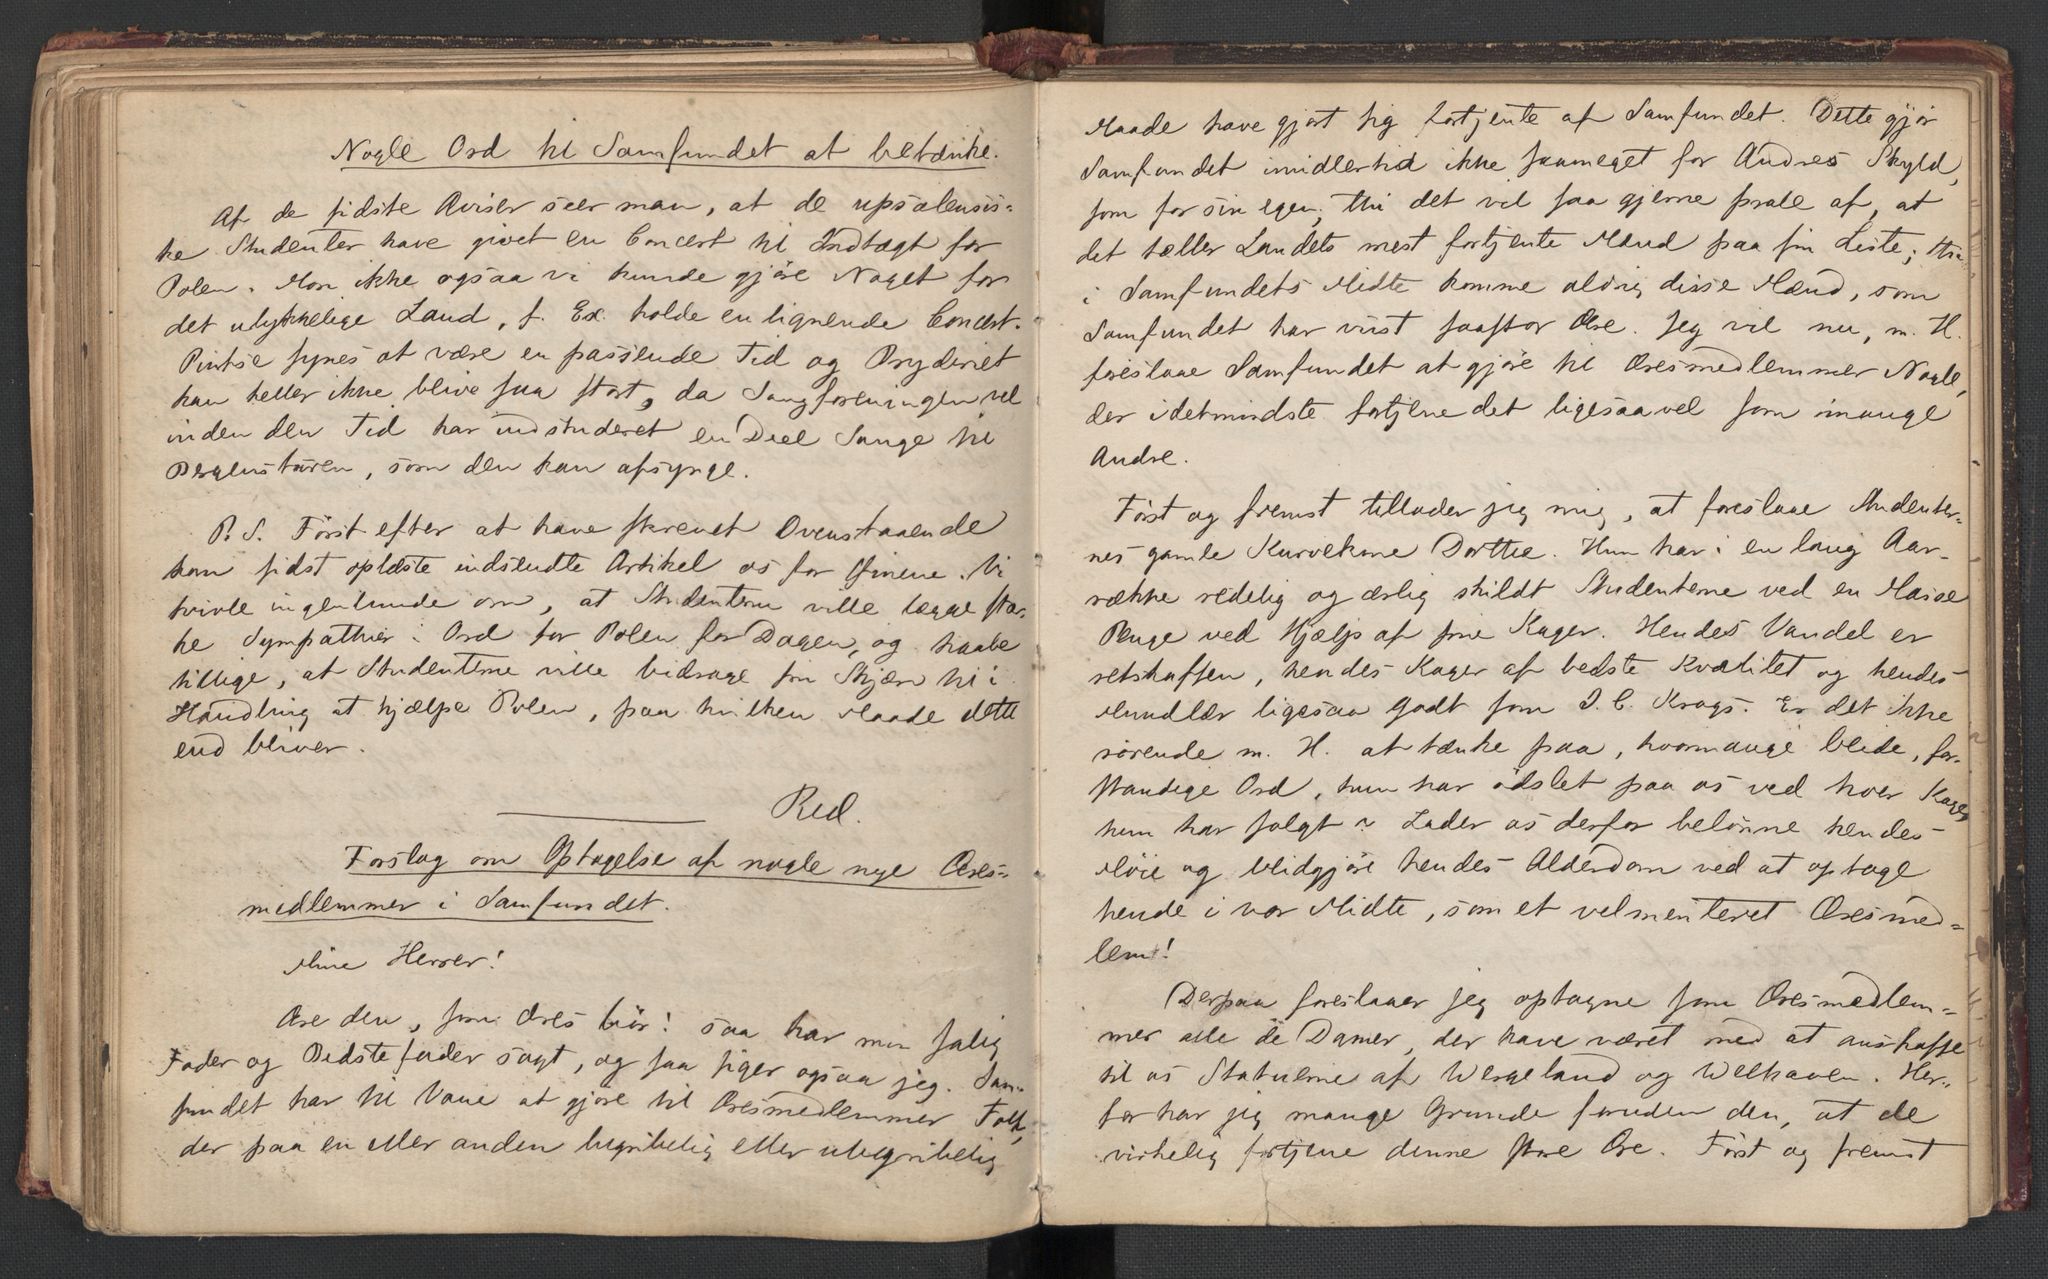 Nogle Ord til Samfundet at betænke.
Af de sidste Aviser seer man, at de upsalensis=
ke Studenter have givet en Concert til Indtægt for
Polen. Mon ikke ogsaa vi kunde gjøre Noget for
det ulykkelige Land, f. Ex. holde en lignende Concert.
Pintse synes at være en passende Tid og Bryderiet
kan heller ikke blive saa stort, da Sangforeningen vel
inden den Tid har indstuderet en Deel Sange til
Bergensturen, som den kan afsynge.
P. S. Først efter at have skrevet Ovenstaaende
kom sidst oplæste indsendte Artikel os for Øinene. Vi
tvivle ingenlunde om, at Studenterne ville lægge stær-
ke Sympathier i Ord for Polen for Dagen, og haabe
tillige, at Studenterne ville bidrage sin Skjærv til i
Handling at hjælpe Polen, paa hvilken Maade dette
end bliver.
Red.
Forslag om Optagelse af nogle nye Æres=
medlemmer i Samfundet.
Mine Herrer!
Ære den, som Æres bør! saa har min salig
Fader og Bedstefader sagt, og saa siger ogsaa jeg. Sam-
fundet har til Vane at gjøre til Æresmedlemmer Folk,
der paa en eller anden begribelig eller ubegribelig
Maade have gjort sig fortjente af Samfundet. Dette gjør
Samfundet imidlertid ikke saameget for Andres Skyld,
som for sin egen; thi det vil saa gjerne prale af, at
det tæller Landets mest fortjente Mænd paa sin Liste; thi
i Samfundets Midte komme aldrig disse Mænd, som
Samfundet har viist saastor Ære. Jeg vil nu, m. H.
foreslaae Samfundet at gjøre til Æresmedlemmer Nogle,
der idetmindste fortjene det ligesaavel som mange
Andre.
Først og fremst tillader jeg mig, at foreslaae Studenter=
nes gamle Kurvekone Dorthe. Hun har i en lang Aar-
række redelig og ærlig skildt Studenterne ved en Masse
Penge ved Hjælp af sine Kager. Hendes Vandel er
retskaffen, hendes Kager af bedste Kvalitet og hendes
Mundlær ligesaa godt som J. C. Krags. Er det ikke
rørende m. H. at tænke paa, hvormange blide, for-
standige Ord, hun har ødslet paa os ved hver Kage,
hun har solgt? Lader os derfor belønne hendes
Møie og blidgjøre hendes Alderdom ved at optage
hende i vor Midte, som et velmenteret Æresmed=
lem!
Derpaa foreslaaer jeg optagne som Æresmedlem=
mer alle de Damer, der have været med at anskaffe
til os Statuerne af Wergeland og Welhaven. Her-
for har jeg mange Grunde foruden den, at de
virkelig fortjene denne store Ære. Først og fremst